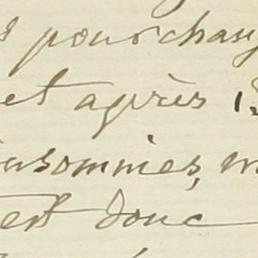 pour chang
et après 1
insomnies, m
est donc